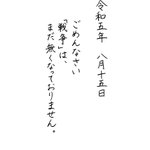 令和五年 八月十五日
ごめんなさい
『戦争』は、
まだ無くなっておりません。